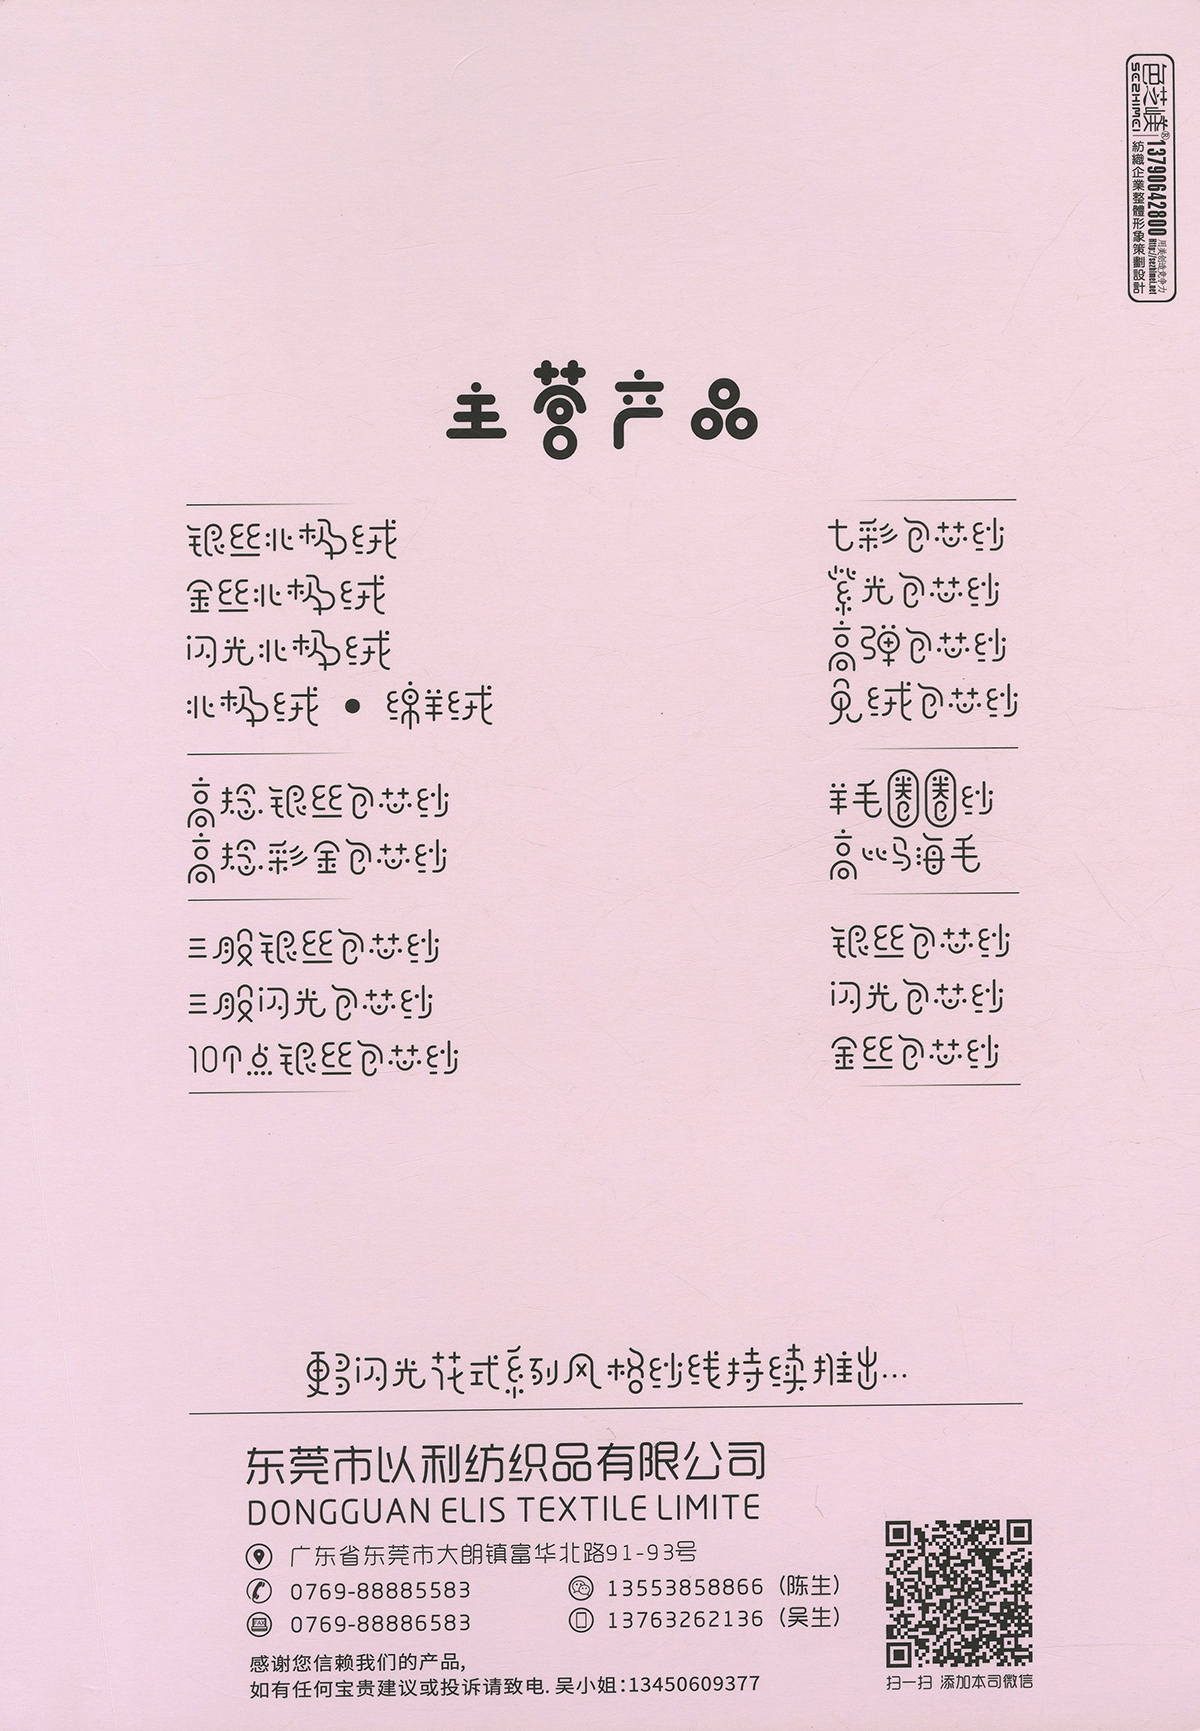 色芝媄®
SEZHIMEI
13790642800
用美创造竞争力
http://sezhimei.net
紡織企業整體形象策劃設計
主营产品
银丝北极绒
金丝北极绒
闪光北极绒
北极绒 ● 绵羊绒
七彩包芯纱
紫光包芯纱
高弹包芯纱
兔绒包芯纱
高捻银丝包芯纱
高捻彩金包芯纱
羊毛圈圈纱
高心马海毛
三股银丝包芯纱
三股闪光包芯纱
10个点银丝包芯纱
银丝包芯纱
闪光包芯纱
金丝包芯纱
更多闪光花式系列风格纱线持续推出...
东莞市以利纺织品有限公司
DONGGUAN ELIS TEXTILE LIMITE
广东省东莞市大朗镇富华北路91-93号
0769-88885583
13553858866（陈生）
FAX 0769-88886583
13763262136（吴生）
感谢您信赖我们的产品,
如有任何宝贵建议或投诉请致电. 吴小姐:13450609377
扫一扫 添加本司微信